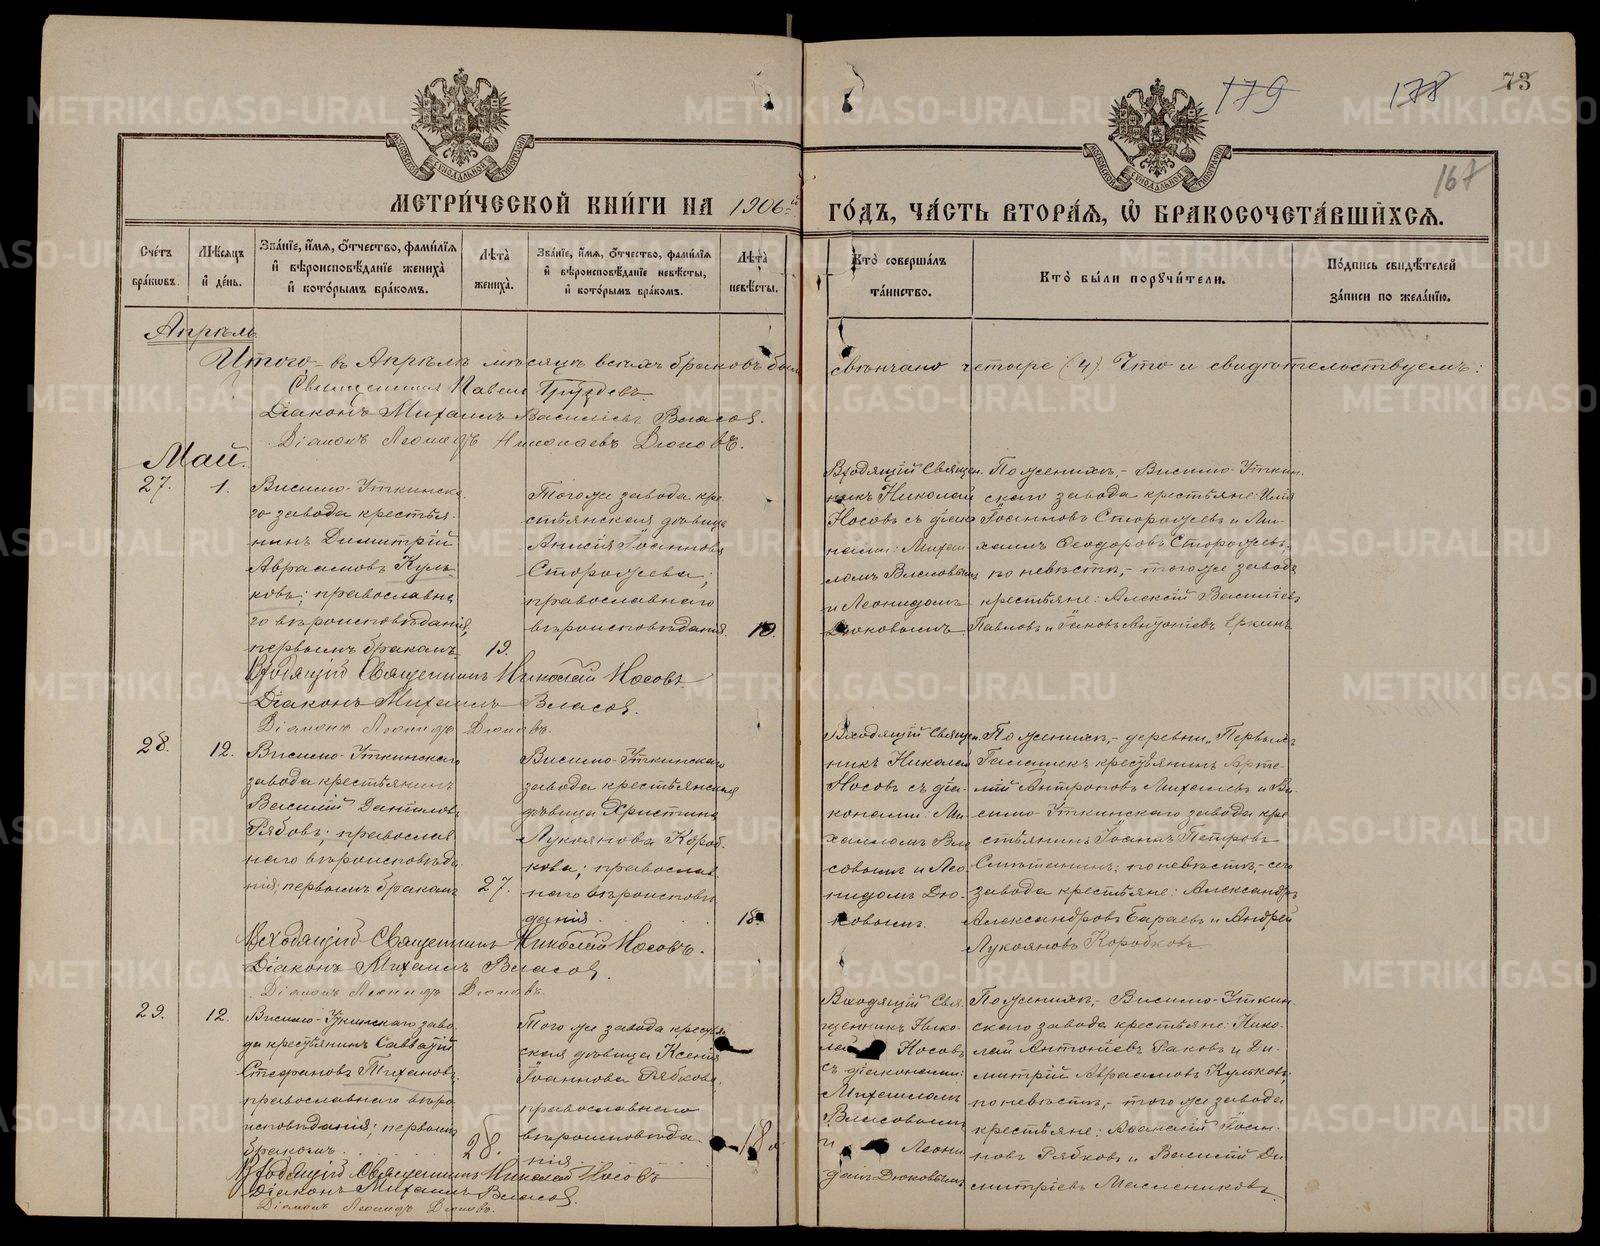 179
178
73
167
МЕТРИ́ЧЕСКОЙ КНИ́ГИ НА 1906-й
ГО́ДЪ, ЧА́СТЬ ВТОРА́Я, Ѡ БРАКОСОЧЕТА́ВШИХСЯ.
Сче́тъ бра́ковъ.
Мѣ́сяцъ и́ де́нь.
Зва́ніе, и́мя, о́тчество, фами́лія и́ вѣроисповѣ́даніе жениха̀ и́ кото́рымъ бра́комъ.
Лѣ́та жениха̀.
Зва́ніе, и́мя, о́тчество, фами́лія и́ вѣроисповѣ́даніе невѣ́сты, и́ кото́рымъ бра́комъ.
Лѣ́та невѣ́сты.
Кто̀ соверша́лъ та́инство.
Кто̀ бы́ли поручи́тели.
По́дпись свидѣ́телей за́писи по жела́нію.
Апрѣль
Итого въ Апрѣлѣ мѣсяцѣ всѣхъ браковъ было
свѣнчано четыре (4). Что и свидѣтельствуемъ:
Священникъ Павелъ Груздевъ
Діаконъ Михаилъ Василіевъ Власов.
Діаконъ Леонидъ Николаевъ Дюковъ.
Май.
27.
1.
Висимо-Уткинска
го завода крестья
нинъ Димитрій
Авраамовъ Куль
ковъ; православна
го вѣроисповѣданія,
первымъ бракомъ
19.
Тогоже завода кре
стьянская дѣвица
Анисія Іоаннова
Сторожева;
православнаго
вѣроисповѣданія.
19.
Входящій Священ
никъ Николай
Носовъ съ діако
нами: Михаи
ломъ Власовымъ
и Леонидомъ
Дюковымъ
По женихѣ,- Висимо-Уткин
скаго завода крестьяне: Илія
Іоанновъ Сторожевъ и Ми
хаилъ Ѳеодоровъ Сторожевъ;
по невѣстѣ,- того же завода
крестьяне: Алексій Василіевъ
Павловъ и Іаковъ Антоніевъ Еркинъ
Входящій Священникъ Николай Носовъ
Діаконъ Михаилъ Власов.
Діаконъ Леонидъ Дюковъ.
28.
12.
Висимо-Уткинскаго
завода крестьянинъ
Василій Даниловъ
Рябовъ; православ
наго вѣроисповѣда
нія, первымъ бракомъ
27.
Висимо-Уткинскаго
завода крестьянская
дѣвица Христина
Лукоянова Короб
кова; православ
наго вѣроисповѣ
данія
18.
Входящій Священ
никъ Николай
Носовъ съ діа
конами: Ми
хаиломъ Вла
совымъ и Лео
нидомъ Дю
ковымъ.
По женихѣ,- деревни Первыхъ
Галашекъ крестьянинъ Арте
мій Антроповъ Михалевъ и Ви
симо-Уткинскаго завода кре
стьянинъ Іоаннъ Петровъ
Сметанинъ; по невѣстѣ,- сего
завода крестьяне: Александръ
Александровъ Бараевъ и Андрей
Лукояновъ Коробковъ
Входящій Священникъ Николай Носовъ.
Діаконъ Михаилъ Власов.
Діаконъ Леонидъ Дюковъ.
29.
12.
Висимо-Уткинскаго заво
да крестьянинъ Савватій
Стефановъ Тихановъ.
православнаго вѣро
исповѣданія; первымъ
бракомъ
28.
Того же завода крестьян
ская дѣвица Ксенія
Іоаннова Рябкова,
православнаго
вѣроисповѣда
нія
18
Входящій Свя
щенникъ Нико
лай Носовъ
съ діаконами:
Михаиломъ
Власовымъ
и Леони
домъ Дюковымъ
По женихѣ,- Висимо-Уткин
скаго завода крестьяне: Нико
лай Антоніевъ Раковъ и Ди
митрій Авраамовъ Кульковъ;
по невѣстѣ,- того же завода
крестьяне: Аѳанасій Іоан
новъ Рябковъ и Василій Ди
митріевъ Маслениковъ.
Входящій Священникъ Николай Носовъ
Діаконъ Михаилъ Власов.
Діаконъ Леонидъ Дюковъ.
METRIKI.GASO-URAL.RU